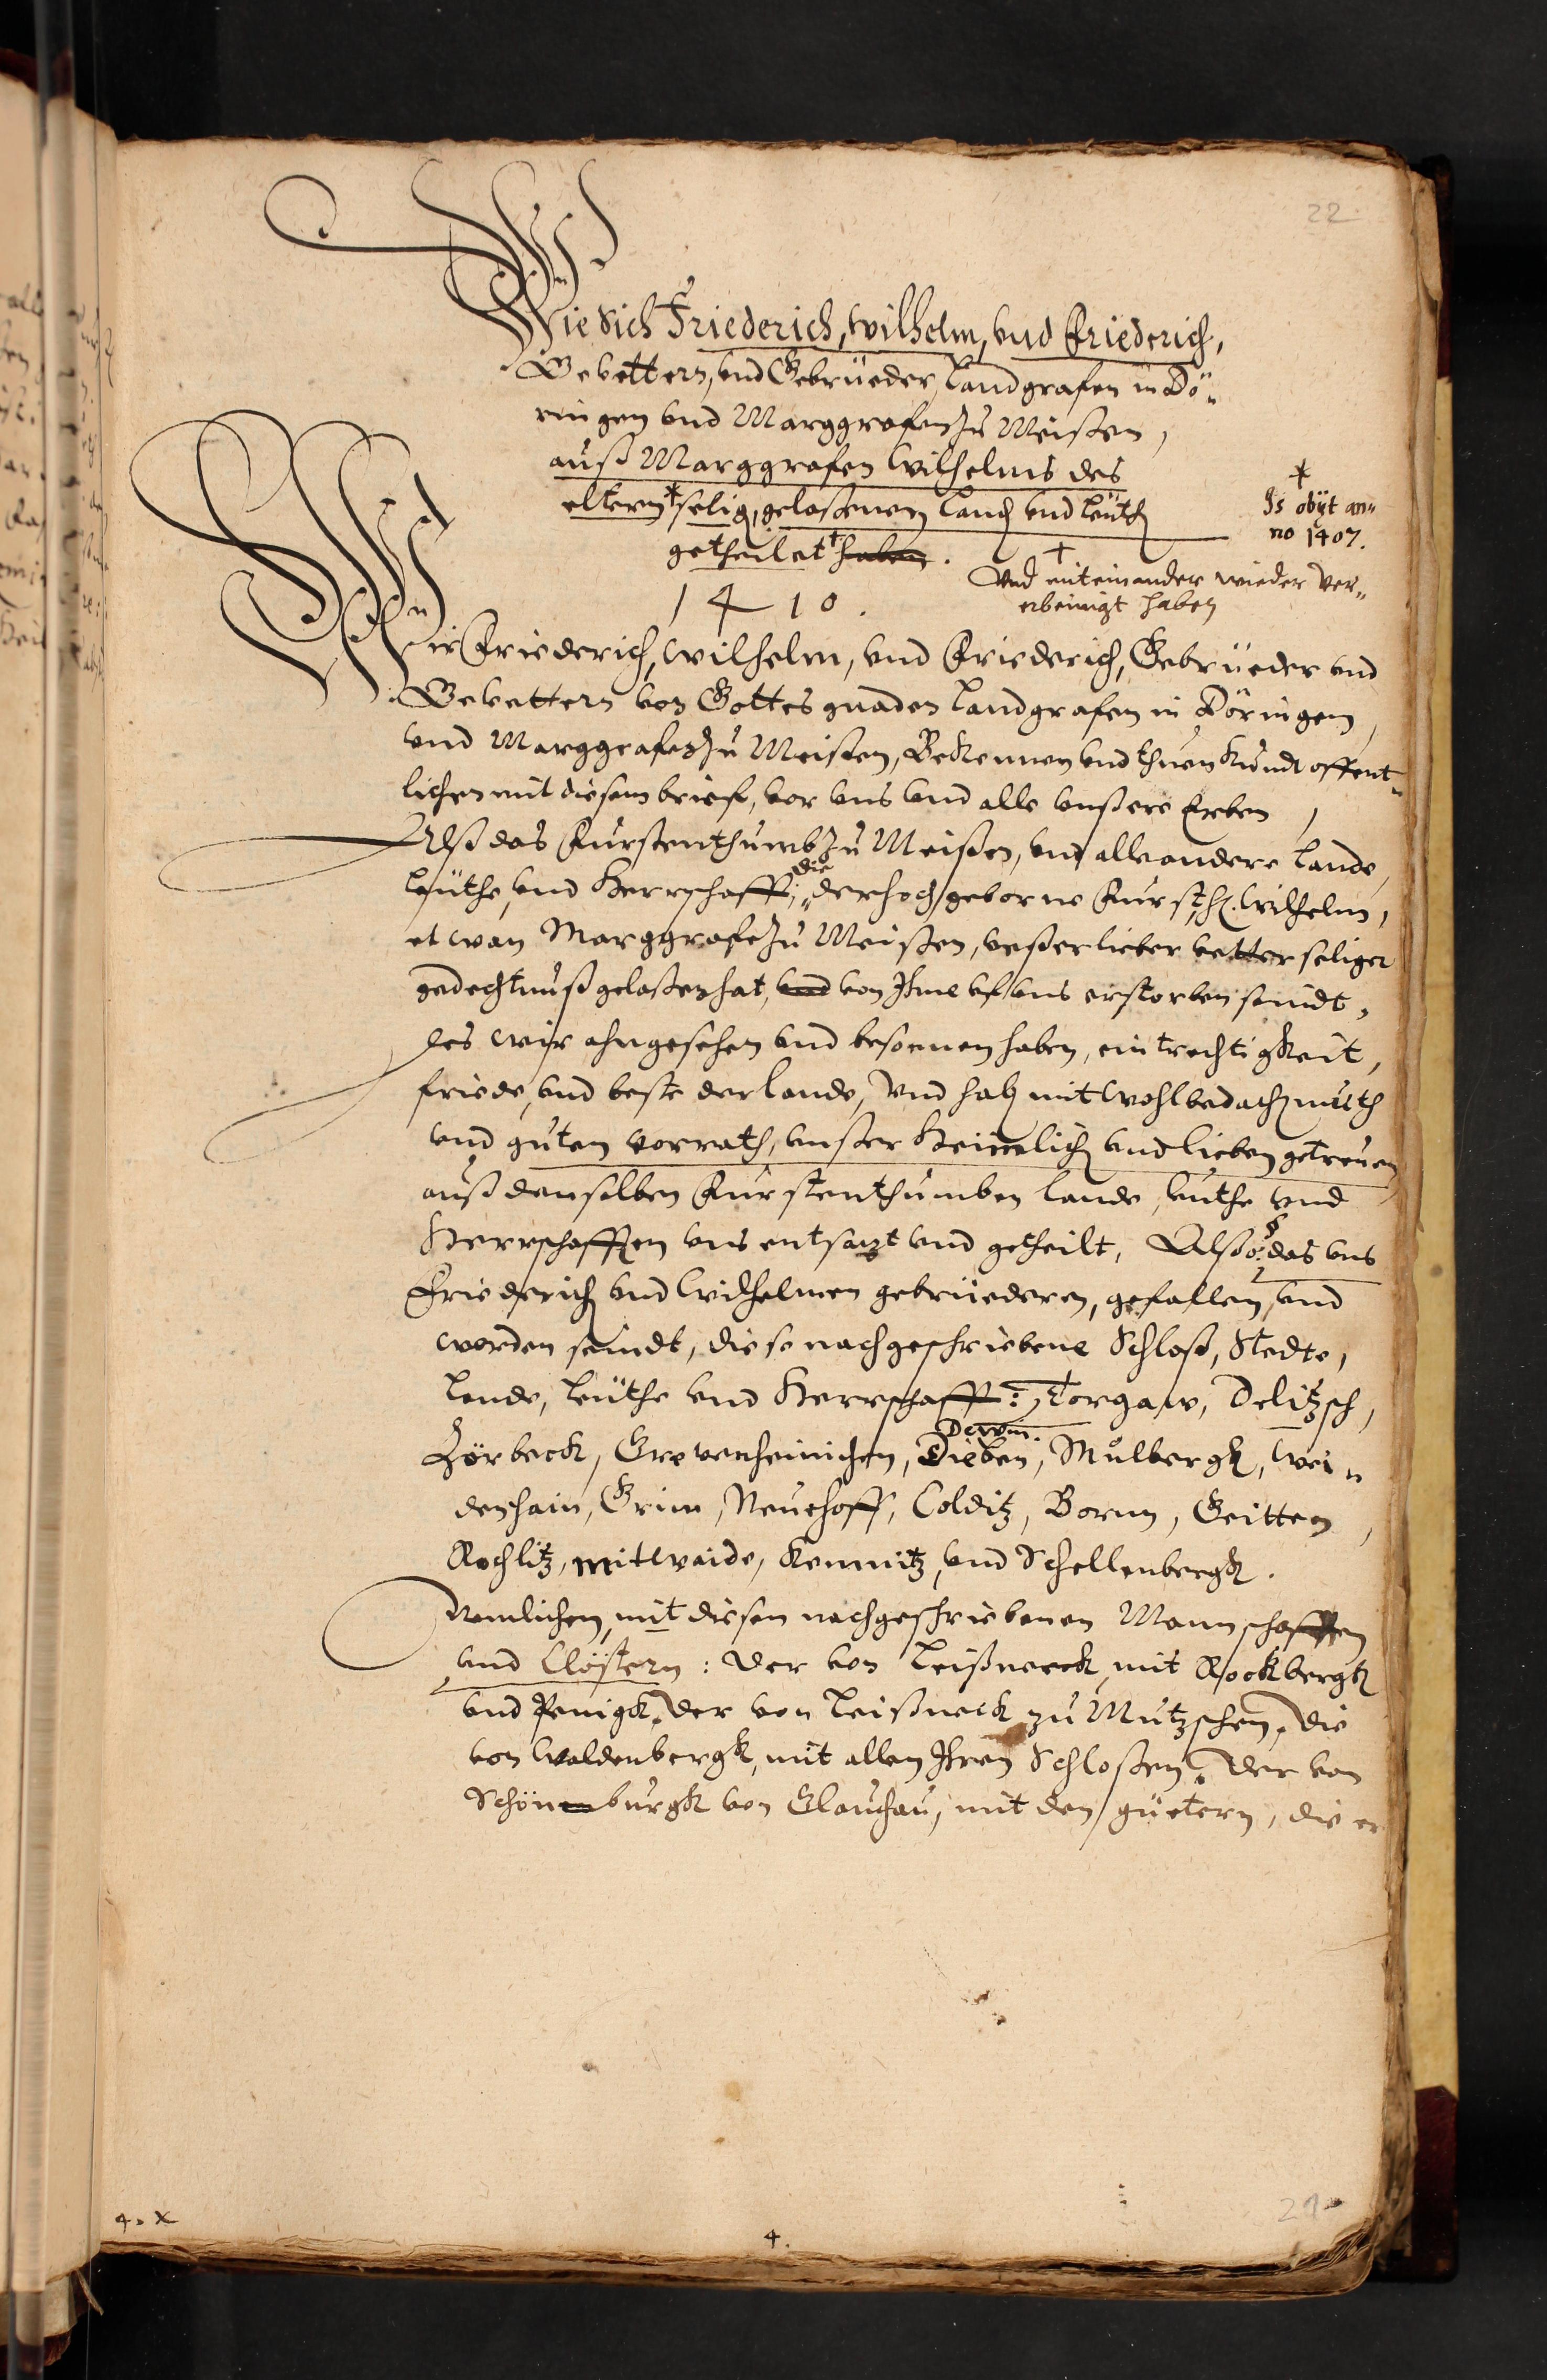 22
Wie Sich Friederich, Wilhelm, vnd Friederich,
Gevettern, vnd Gebrüeder, Landgrafen in Dö¨
ringen vnd Marggrafen zu Meißen,
auß Marggrafen Wilhelms des
eltern * selig, gelaßenen Land vnd Leuth
getheilet † haben.
1410.
*
Is obijt an¨
no 1407.
†
Vnd miteinander wieder ver¨
erbeinigt haben
Wir Friederich, Wilhelm, vnd Friederich, Gebrüeder vnd
Gevettern von Gottes gnaden Landgrafen in Döringen,
vnd Marggrafen zu Meißen, Bekennen vnd thuen Kundt offent¨
lichen mit diesem brief, vor vns vnd alle vnßere Erben,
Alß das Furstenthumb zu Meißen, vnd alle andere Lande,
leüthe, vnd Herrschafft, die der hochgeborne Furst, H. Wilhelm,
etwan Marggrafe zu Meißen, vnßer lieber vetter seliger
gedechtnuß gelaßen hat, vnd von Ihme vf vns erstorben seindt,
des wir ahngesehen vnd besonnen haben, eintrechtigkeit,
friede, vnd beste der Lande, Vnd hab mit wohlbedach muth
vnd guten vorrath, vnßer Heimlich vnd lieben getreuen
auß denselben Furstenthumben lande, leuthe vnd
Herrschafften vns entsazt vnd getheilt, Alßo, das vns
Friederich vnd Wilhelmen gebrüederen, gefallen, vnd
worden seindt, diese nachgeschriebene Schloß, Stedte,
Lande, Leüthe vnd Herrschafft: Torgaw, Delitzsch,
Zörbeck, Grevenheinichen, Dieben, Mulbergk, Wei¨
Dewin.
denhain, Grim, Neuehoff, Colditz, Born, Geitten,
Rochlitz, Mitwaide, Kemnitz, vnd Schellenbergk.
Nemlichen, mit diesen nachgeschriebenen Mannschafften
vnd Clöstern: Der von Leißneck, mit Rockbergk
vnd Penigk, Der von Leißneck zu Mutzschen, Die
von Waldenbergk, mit allen Ihren Schloßen, Der von
Schönenburgk von Glauchau, mit den güetern, die er
4. X
4.
21